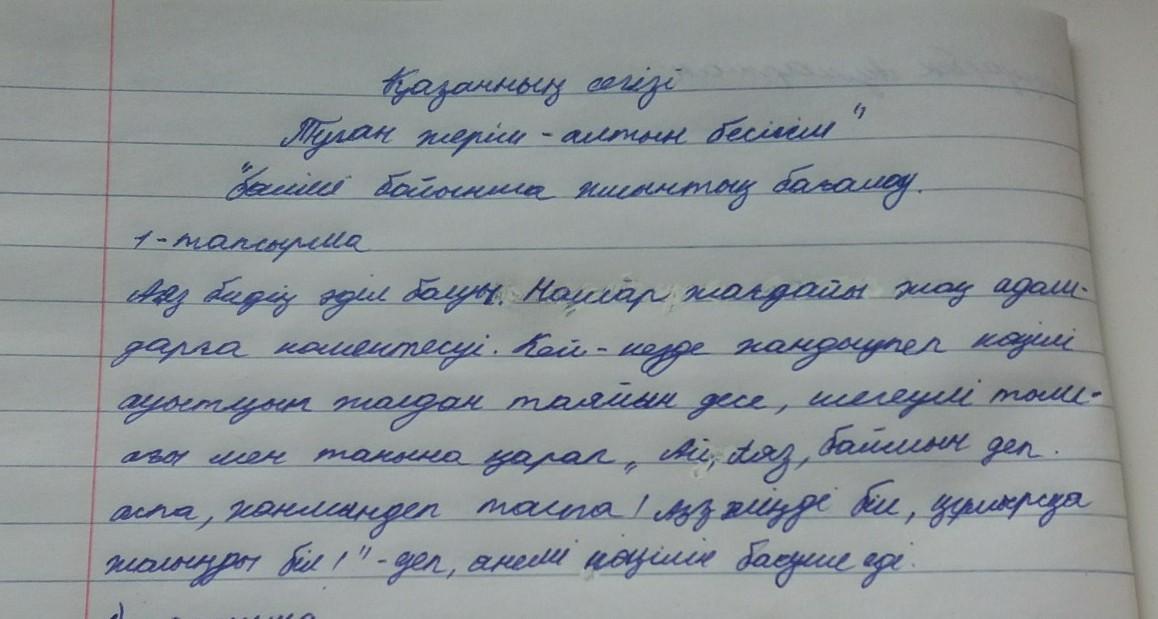 Қазанның сегізі
Туған жерім - алтын бесігім"
"бөлімі бойынша жиынтық бағалау.
1-тапсырма
Аяз бидің әділ болуы. Нашар жағдайы жоқ адам-
дарға көмектесуі. Кей-кезде хандықпен көңілі
ауытқып жолдан таяйын десе, шегеулі тыма-
ғы мен тонына қарап „Ай, Аяз, баймын деп
аспа, ханмындеп таспа! Аязәліңді біл, құмырсқа
жолыңды біл!"-деп, әнемі көңілін басушы еді.